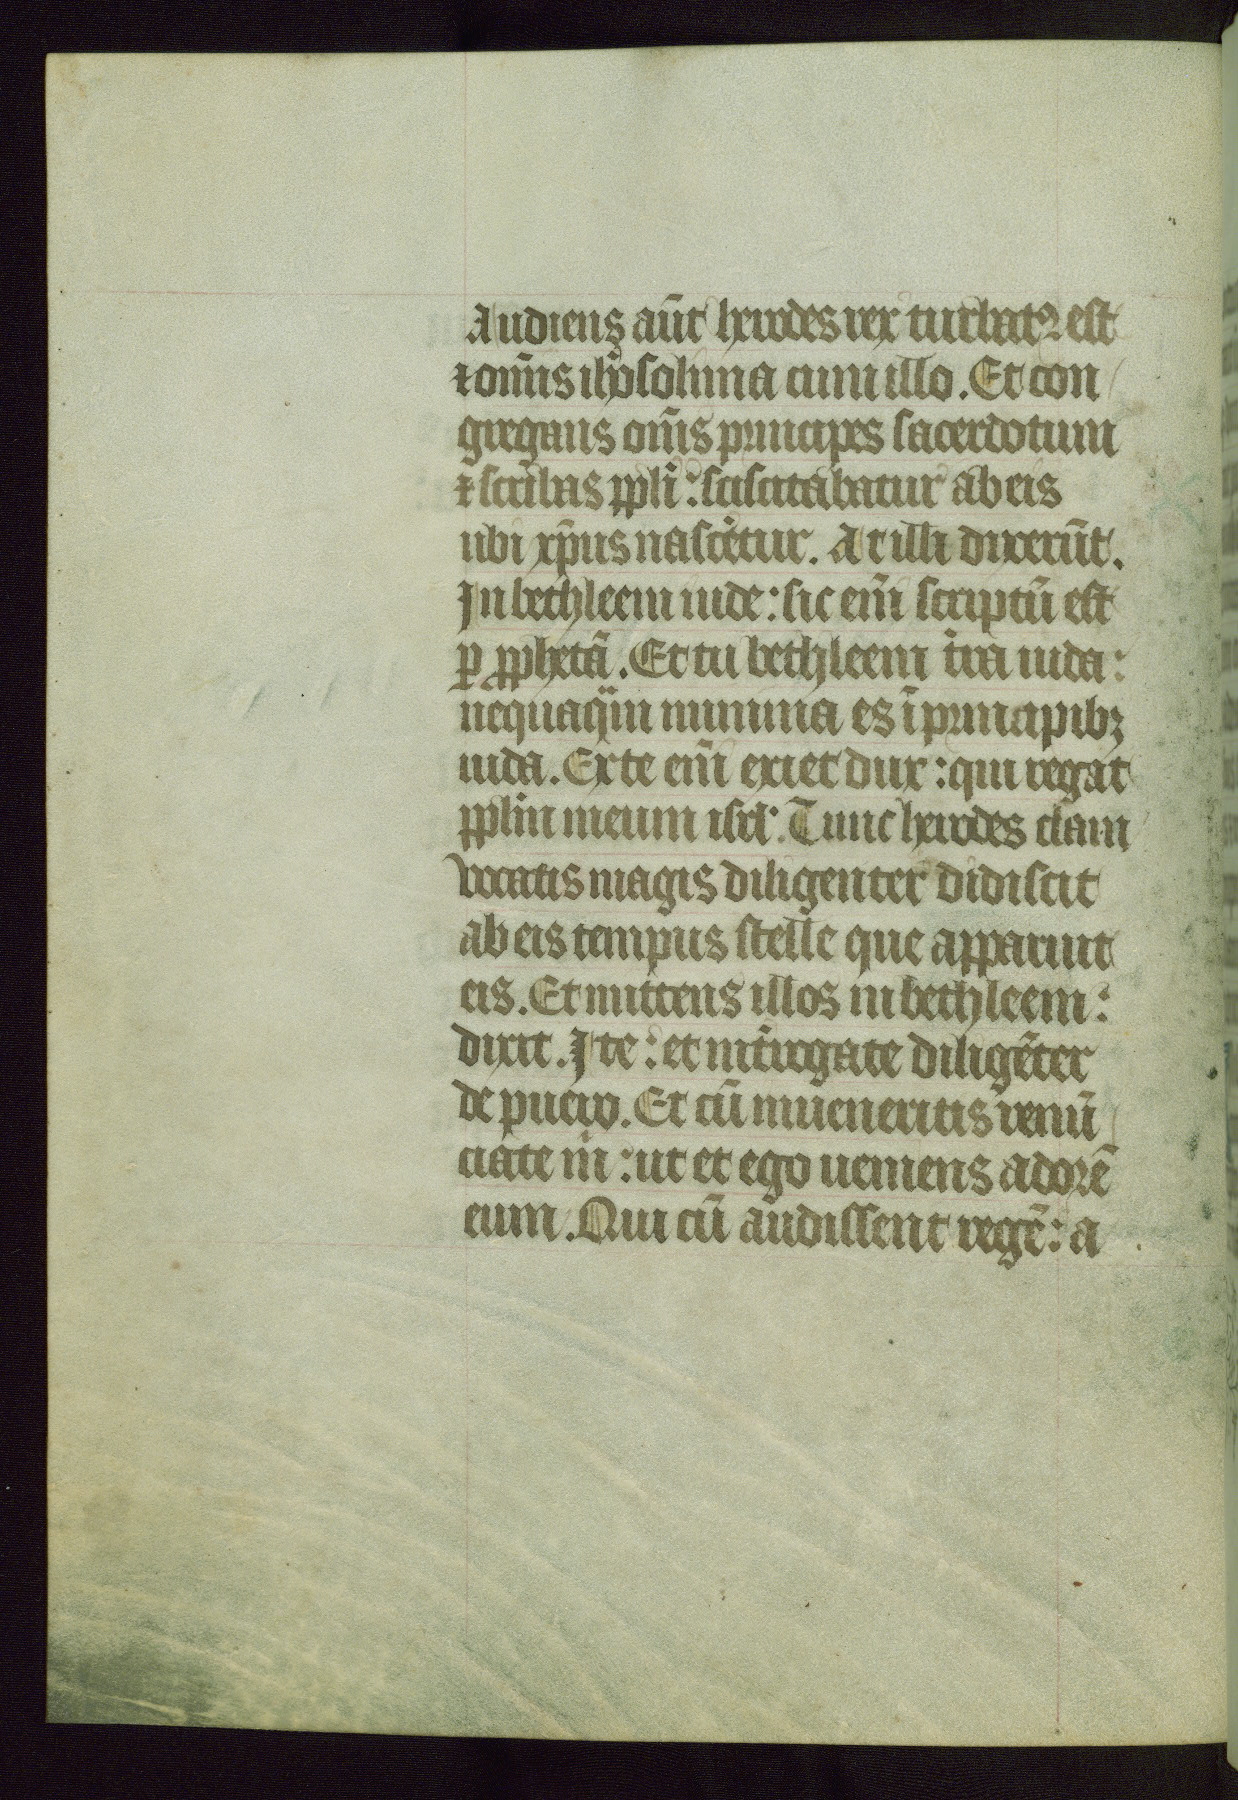 Audiens aūt herodes rex turbatꝰ est
⁊ om̄is ih̕osolima cum illo. Et con
gregans om̄s principes sacerdotum
⁊ scribas ppl̄i: sciscitabatur ab eis
ubi xp̄us nascet̕ur. At illi dixerūt.
In bethleem iude: sic em̄ scriptū est
ꝑ ꝓphetā. Et tu bethleem t̕ra iuda:
nequaq̈m minima es ī principibꝫ
iuda. Ex te em̄ exiet dux: qui regat
ppl̄m meum isrl̕. Tunc herodes clam
vocatis magis diligenter didiscit
ab eis tempus stelle que apparuit
eis. Et mittens illos in bethleem:
dixit. Ite: et int̕rogate diligēter
de puero. Et cū inueneritis renū
ciate m̄: ut et ego ueniens adorē
eum. Qui cū audissent regē: a